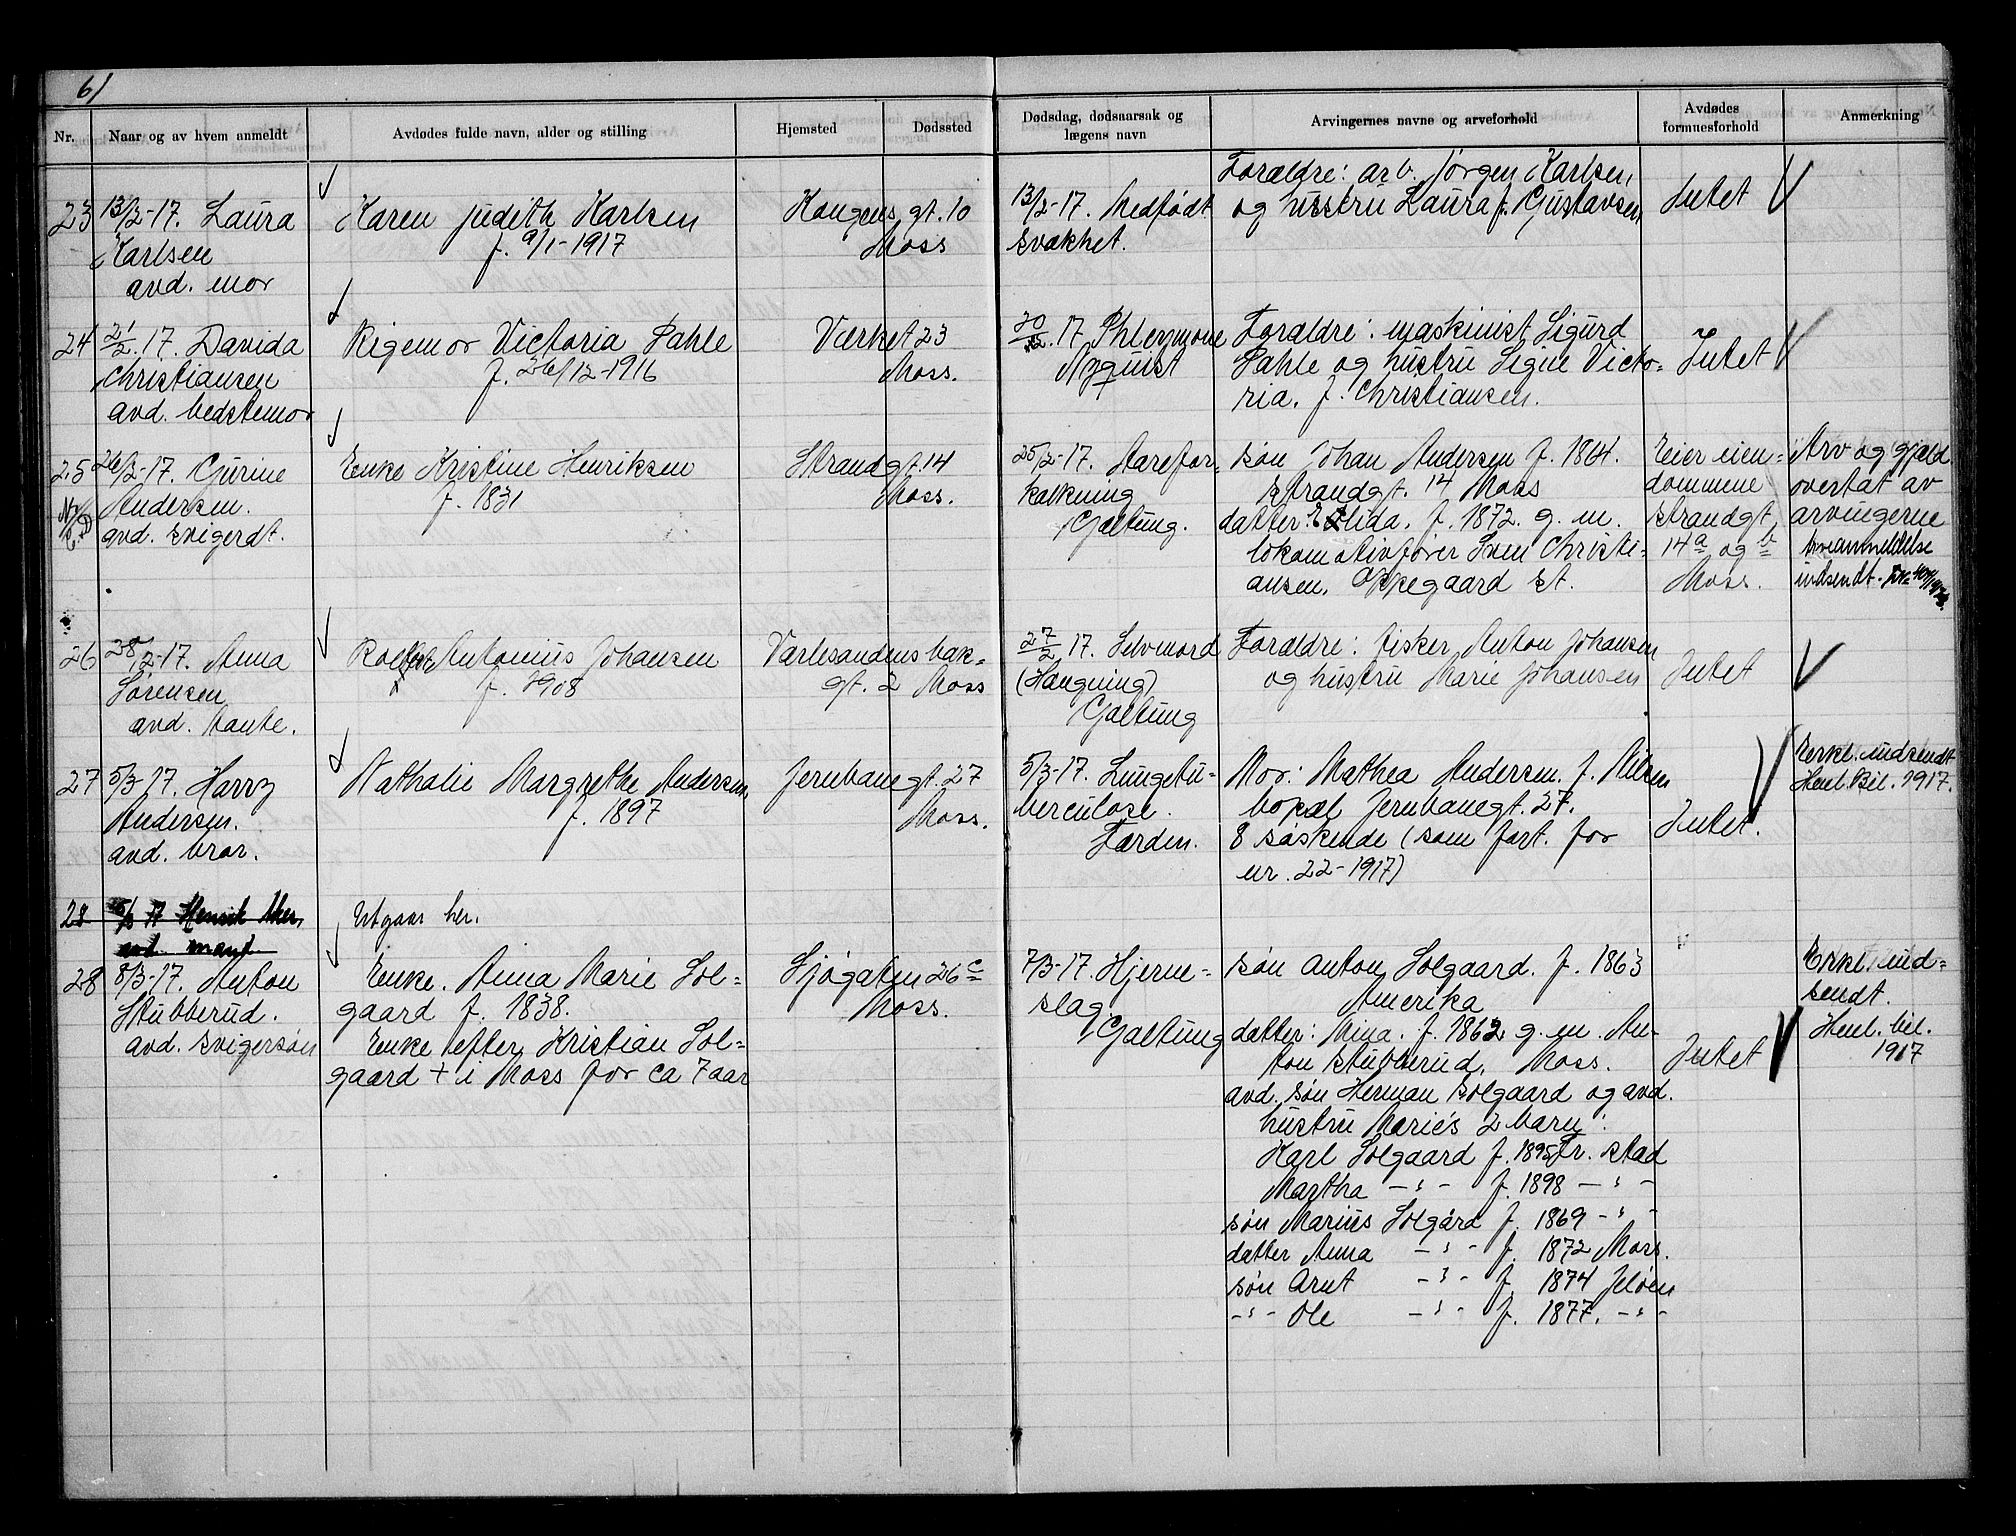 61
Nr.
Naar og av hvem anmeldt
Avdødes fulde navn, alder og stilling
Hjemsted
Dødssted
Dødsdag, dødsaarsak og
lægens navn
Arvingernes navne og arveforhold
Avdødes
formuesforhold
Anmerkning
23
13/2-17. Laura
Karlsen
avd. mor
Karen Judith Karlsen
f. 9/1-1917
Kongens gt. 10
Moss
13/2-17. Medfødt
svakhet.
Forældre: arb. Jørgen Karlsen,
og hustru Laura f. Gustavsen
Intet
24
21/2.17. Davida
Christiansen
avd. bedstemor
Rigemor Victoria Dahle
f. 26/12-1916
Værket 23
Moss.
20/2.17 Phlegmone
Nyquist
Forældre: maskinist Sigurd
Dahle og hustru Signe Victo-
ria. f. Christiansen.
Intet
25
26/2-17. Gurine
Andersen.
avd. svigerdt.
Enke Kristine Henriksen
f. 1831
Strandgt. 14
Moss.
25/2-17. Aarefor-
kalkning
Galtung.
søn Johan Andersen f. 1864.
Strandgt. 14 Moss
datter: Elida. f. 1872. g. m.
lokomotivfører Sven Christi-
ansen, Oppegaard st.
Eier eien-
dommene
Strandgt.
14a og b
Moss.
Arv og gjæld
overtat av
arvingerne
Arveanmeldelse
indsendt.
26
28/2-17. Anna
Sørensen
avd. tante.
Antonius Johansen
f. 1908
Varlesandens bak-
gt. 2 Moss
27/2.17. Selvmord
(Hængning)
Galtung
Forældre: fisker Anton Johansen
og hustru Marie Johansen
Intet
27
5/3-17. Harry
Andersen.
avd. bror.
Nathalie Margrethe Andersen,
f. 1897
Jernbanegt. 27
Moss.
5/3-17. Lungetu-
berculose.
Farden.
Mor: Mathea Andersen. f. Nilsen
bopæl Jernbanegt. 27.
8 søskende (som fort. for
nr. 22-1917)
Intet.
Erkl. indsendt
Henl. Bil. 1917.
28
Henrik
avd. mand
Utgaar her.
28
8/3-17. Anton
Stubberud.
avd. svigersøn
Enke. Anna Marie Sol-
gaard f. 1838.
Enke efter Kristian Sol-
gaard + i Moss for ca 7 aar
Sjøgaten 26c
Moss.
7/3-17. Hjerne-
slag.
Galtung
søn Anton Solgaard. f. 1863
Amerika
datter: Mina. f. 1862 g. m. An-
ton Stubberud, Moss.
avd. søn Herman Solgaard og avd.
hustru Marie's 2 barn:
Karl Solgaard f. 1895 Fr. stad
Martha -"- f. 1898 -"-
søn Marius Solgård f. 1869 -"-
datter Anna -"- f. 1872 Moss.
søn Arnt -"- f. 1874 Jeløen
-"- Ole -"- f. 1877. -"-
Intet
Erkl. ind-
sendt.
Henl. bil.
1917